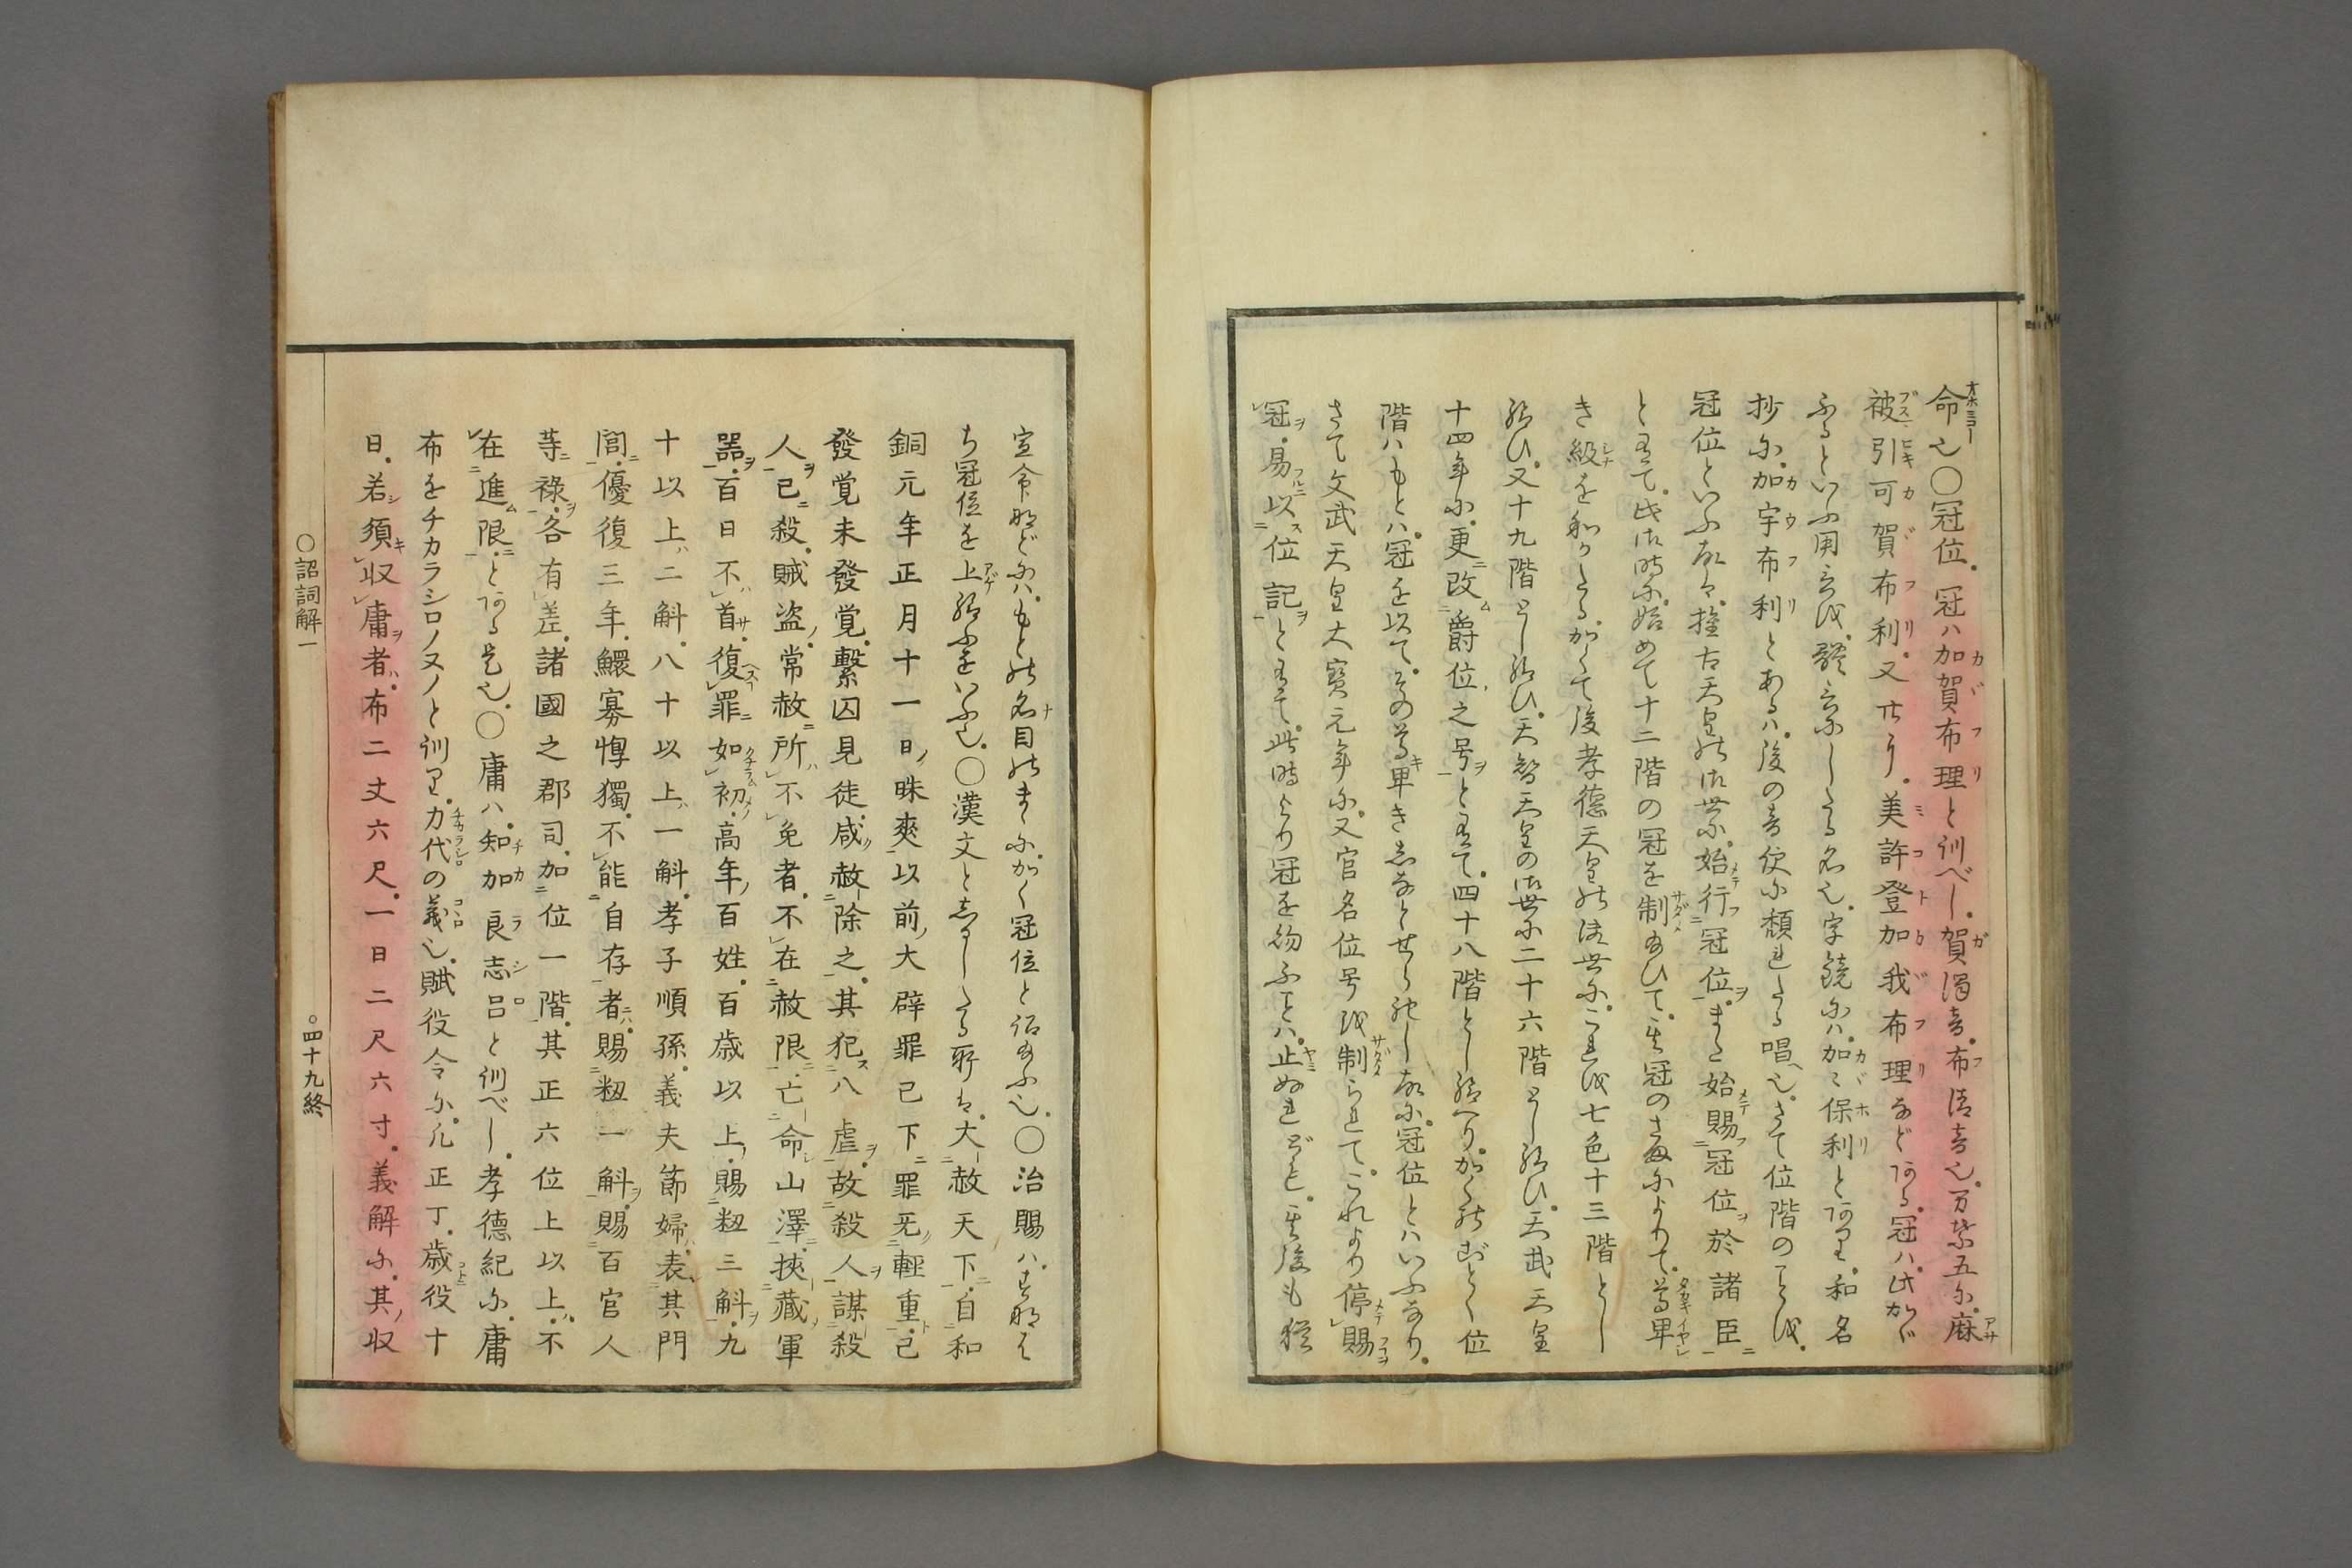 命也○冠位。冠ハ加賀布理と訓べし。賀濁音。布清音也。万葉五に。麻
被引可賀布利。又廿に。美許登加我布理などある。冠ハ。此かゞ
ふるといふ用言を。體言にしたる名也。字鏡にハ。加ヾ保利とあり。和名
抄に。加宇布利とあるハ。後の音便に頽れたる唱へ也。さて位階のことを。
冠位といふ故ハ。推古天皇の御世に。始行冠位。また始賜冠位於諸臣
と有て。此御時に。始めて十二階の冠を制給ひて。其冠のさまによりて。尊卑
き級を和かたる。かくて後孝德天皇の御世に。これを七色十三階とし
給ひ。又十九階とし給ひ。天智天皇の御世に二十六階とし給ひ。天武天皇
十四年に。更改爵位之号と有て。四十八階とし給へり。かくのごとく位
階ハもとハ。冠を以て。その尊卑きしなとせられし故に。冠位とハいふなり。
さて文武天皇大寶元年に。又官名位号を制られて。これより停賜
冠。易以位記と有て。此時より冠を給ふことハ。止ぬれども。其後も猶
宣命などにハ。もとの名目のまゝに。かく冠位と詔給ふ也。○治賜ハ。すなは
ち冠位を上給ふをいふ也。○漢文としるしたる所は。大赦天下。自和
銅元年正月十一日昧爽以前。大辟罪已下。罪无輕重。已
發覚未發覚。繫囚見徒。咸赦除之。其犯八虐。故殺人。謀殺
人已殺。賊盗。常赦所不免者。不在赦限。亡命山澤。挾藏軍
器。百日不首。復罪如初。高年百姓。百歳以上。賜籾三斛。九
十以上二斛。八十以上一斛。孝子順孫。義夫節婦。表其門
閭。優復三年。鰥寡惸獨。不能自存者。賜籾一斛。賜百官人
等祿。各有差。諸國之郡司。加位一階。其正六位上以上。不
在進限。とある是也。○庸ハ。知加良志呂と訓べし。孝德紀に。庸
布をチカラシロノヌノと訓り。力代の義也。賦役令に。凡正丁。歳役十
日。若須收庸者。布二丈六尺。一日二尺六寸。義解に。其收
○詔詞解一
○四十九終